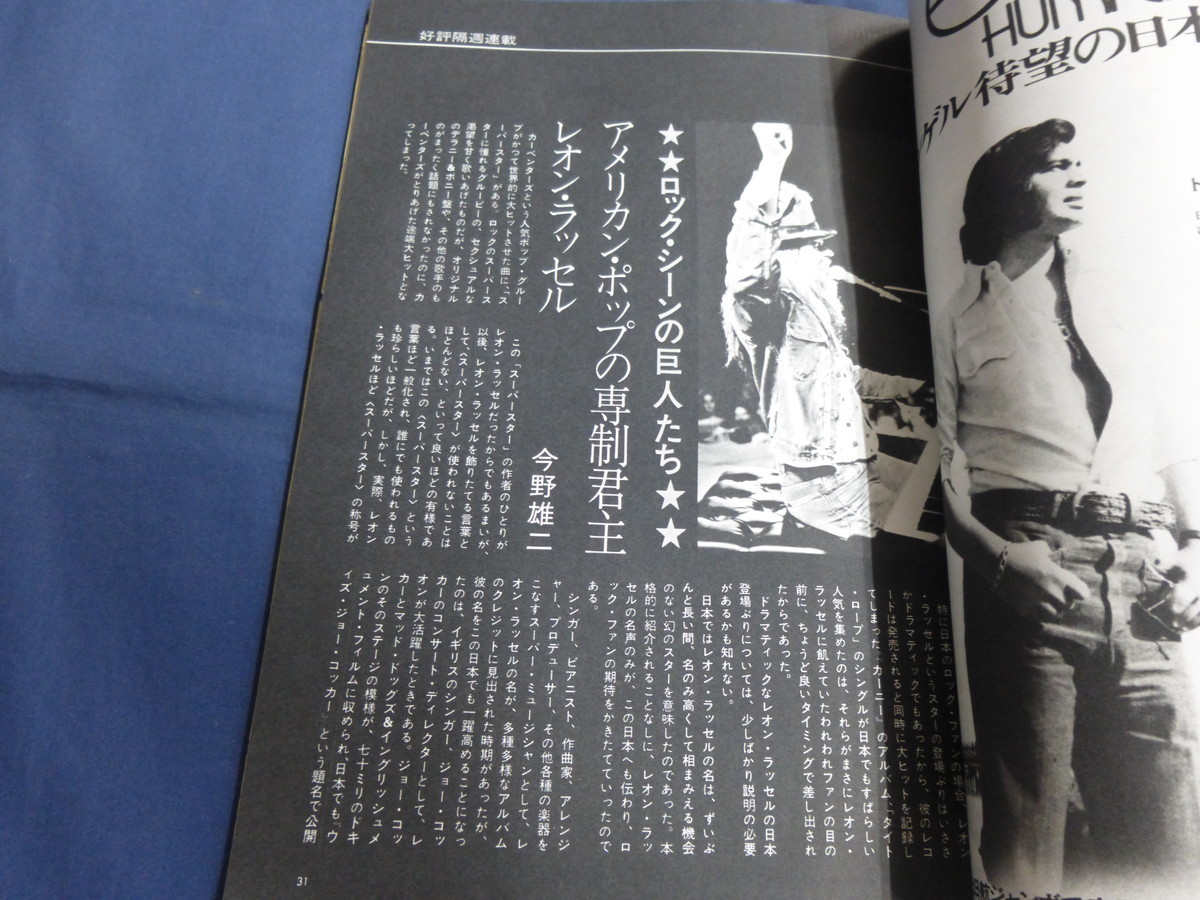 好評隔週連載
★★ロック・シーンの巨人たち★★
アメリカン・ポップの専制君主
レオン・ラッセル
今野雄二
カーペンターズという人気ポップ・グルー
プがかつて世界的に大ヒットさせた曲に、「ス
ーパースター」がある。ロックのスーパース
ターに憧れるグルーピーの、セクシュアルな
渇望を甘く歌いあげたものだが、オリジナル
のデラニー&ボニー盤や、その他の歌手のも
のがまったく話題にもされなかったのに、カ
ーペンターズがとりあげた途端大ヒットとな
ってしまった。
この「スーパースター」の作者のひとりが
レオン・ラッセルだったからでもあるまいが、
以後、レオン・ラッセルを飾りたてる言葉と
して、〈スーパースター〉が使われないことは
ほとんどない、といって良いほどの有様であ
る。いまではこの〈スーパースター〉という
言葉ほど一般化され、誰にでも使われるもの
も珍らしいほどだが、しかし、実際、レオン
・ラッセルほど〈スーパースター〉の称号が
特に日本のロック・ファンの場合、レオン
・ラッセルというスターの登場ぶりはいささ
かドラマティックでもあったから、彼のレコ
ードは発売されると同時に大ヒットを記録し
てしまった。「カーニー」のアルバム、「タイト
・ロープ」のシングルが日本でもすばらしい
人気を集めたのは、それらがまさにレオン・
ラッセルに飢えていたわれわれファンの目の
前に、ちょうど良いタイミングで差し出され
たからであった。
ドラマティックなレオン・ラッセルの日本
登場ぶりについては、少しばかり説明の必要
があるかも知れない。
日本ではレオン・ラッセルの名は、ずいぶ
んと長い間、名のみ高くして相まみえる機会
のない幻のスターを意味したのであった。本
格的に紹介されることなしに、レオン・ラッ
セルの名声のみが、この日本へも伝わり、ロ
ック・ファンの期待をかきたてていったので
ある。
シンガー、ピアニスト、作曲家、アレンジ
ャー、プロデューサー、その他各種の楽器を
こなすスーパー・ミュージシャンとして、レ
オン・ラッセルの名が、多種多様なアルバム
のクレジットに見出された時期があったが、
彼の名をこの日本でも一躍高めることになっ
たのは、イギリスのシンガー、ジョー・コッ
カーのコンサート・ディレクターとして、レ
オンが大活躍したときである。ジョー・コッ
カーとマッド・ドッグズ&イングリッシュメ
ンのそのステージの模様が、七十ミリのドキ
ュメント・フィルムに収められ、日本でも「ウ
イズ・ジョー・コッカー」という題名で公開
31
ゲル待望の日本